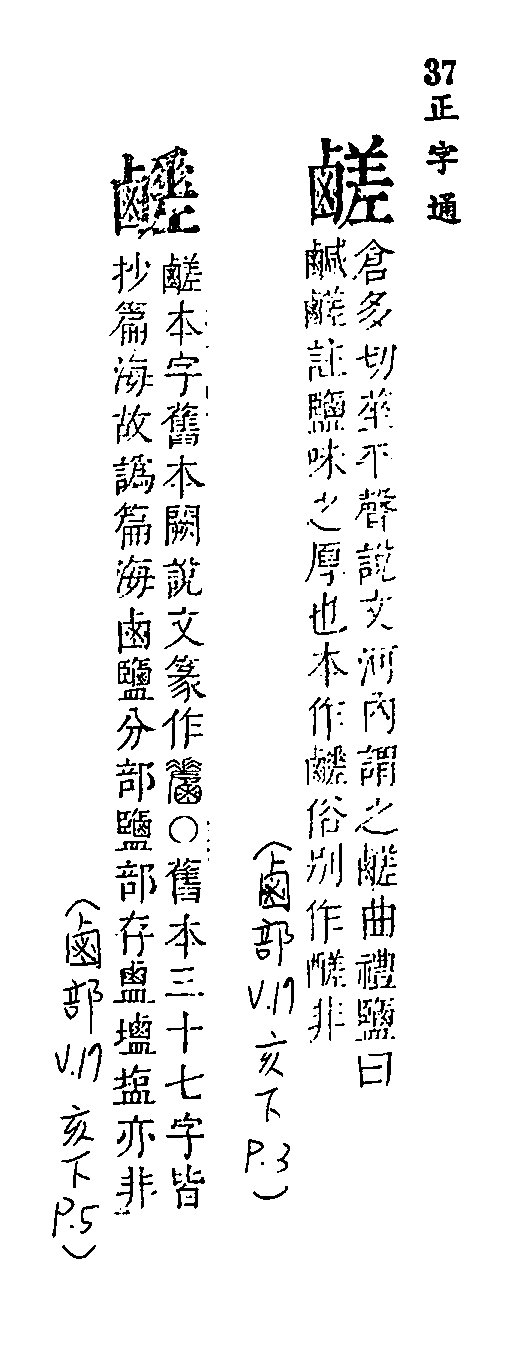 37 正字通
鹺
倉多切䒳平聲說文河內謂之鹺曲禮鹽曰
鹹鹺註鹽味之厚也本作俗別作醝非
(鹵部 V.17 亥下 P.3)
鹺本字舊本闕說文篆作〇舊本三十七字皆
抄篇海故譌篇海鹵鹽分部鹽部存塩亦非
(鹵部 V.17 亥下 P.5)